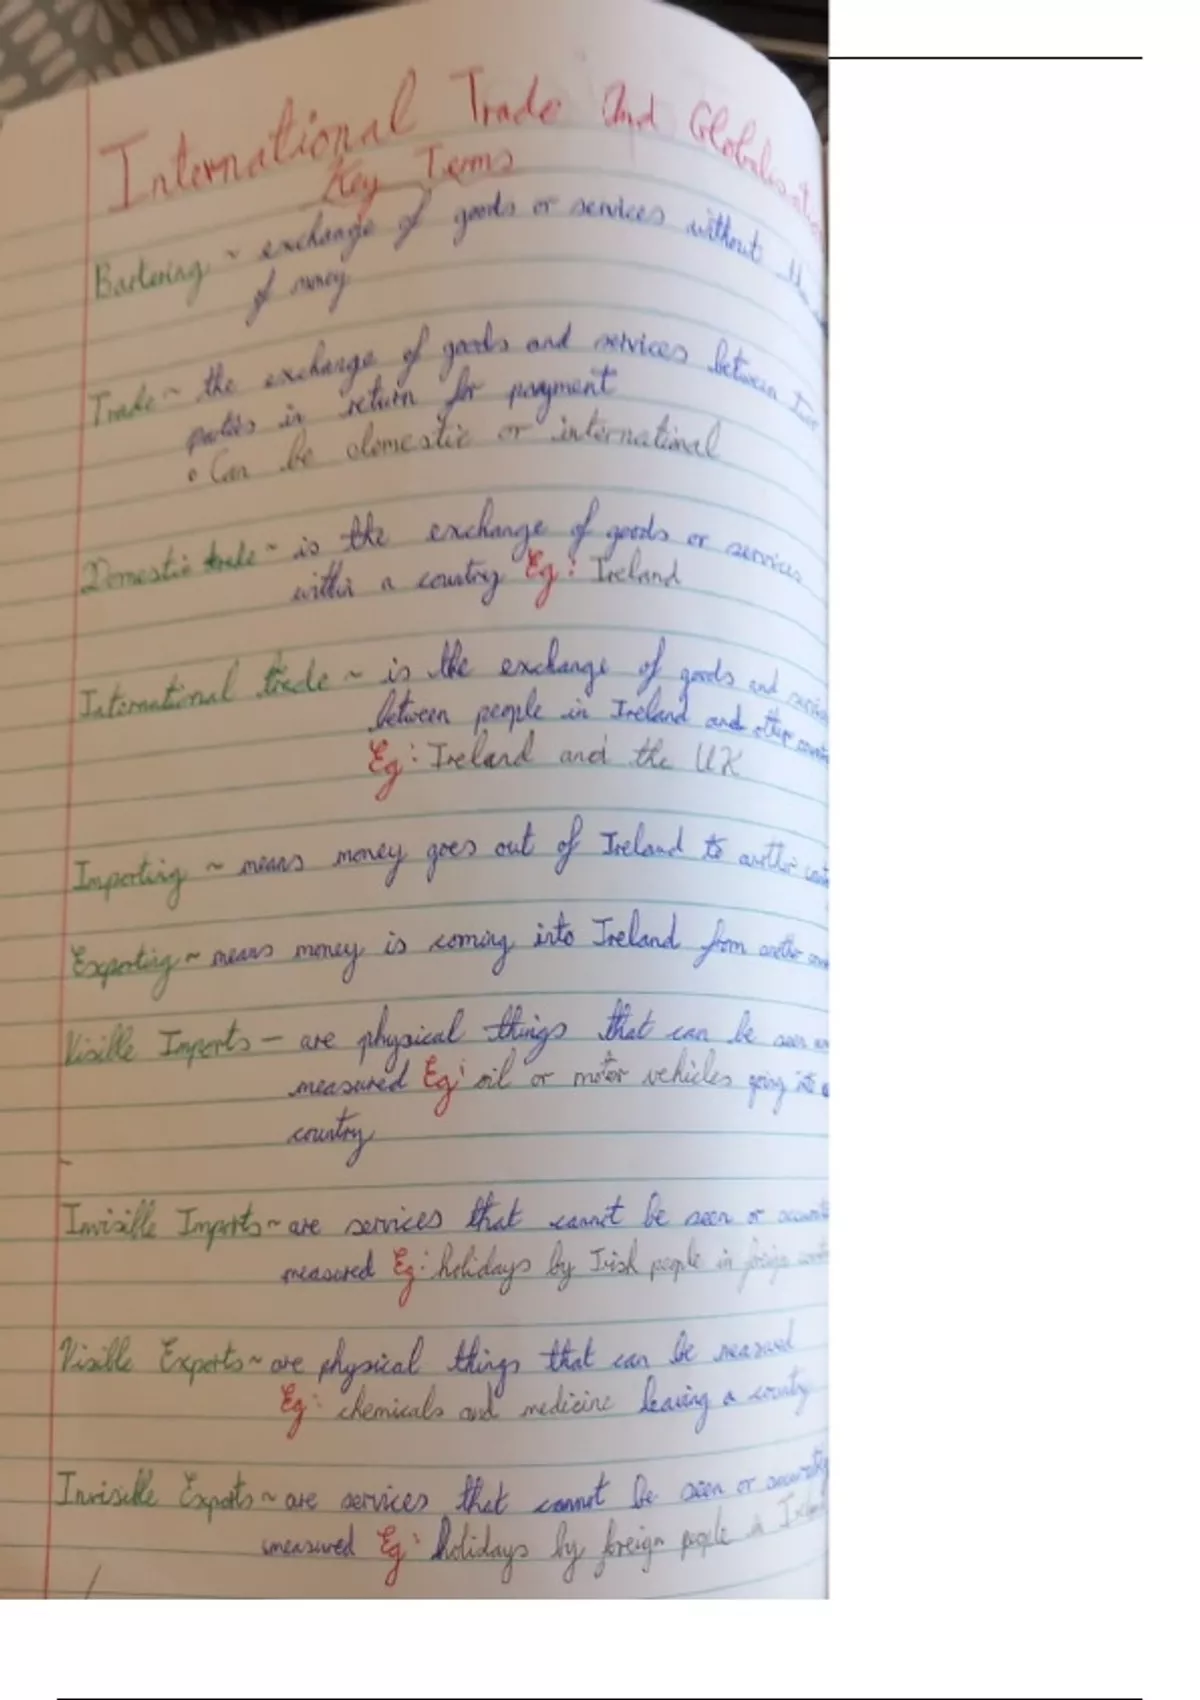 International Trade and Globalisation
Key Terms
Bartering ~ exchange of goods or services without
of money
Trade ~ the exchange of goods and services between
parties in return for payment
• Can be domestic or international
Domestic trade ~ is the exchange of goods or services
within a country Eg: Ireland
International trade ~ is the exchange of goods and
between people in Ireland and other
Eg: Ireland and the UK
Importing ~ means money goes out of Ireland to another
Exporting ~ means money is coming into Ireland from another
Visible Imports – are physical things that can be seen
measured Eg: oil or motor vehicles going into a
country
Invisible Imports ~ are services that cannot be seen or
measured Eg: holidays by Irish people in foreign
Visible Exports ~ are physical things that can be measured
Eg: chemicals and medicine leaving a country
Invisible Exports ~ are services that cannot be seen or
measured Eg: holidays by foreign people in